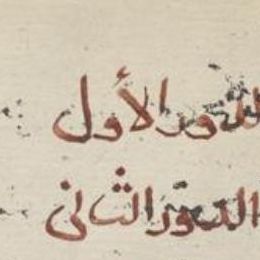 الدور الأول
الدور الثانى